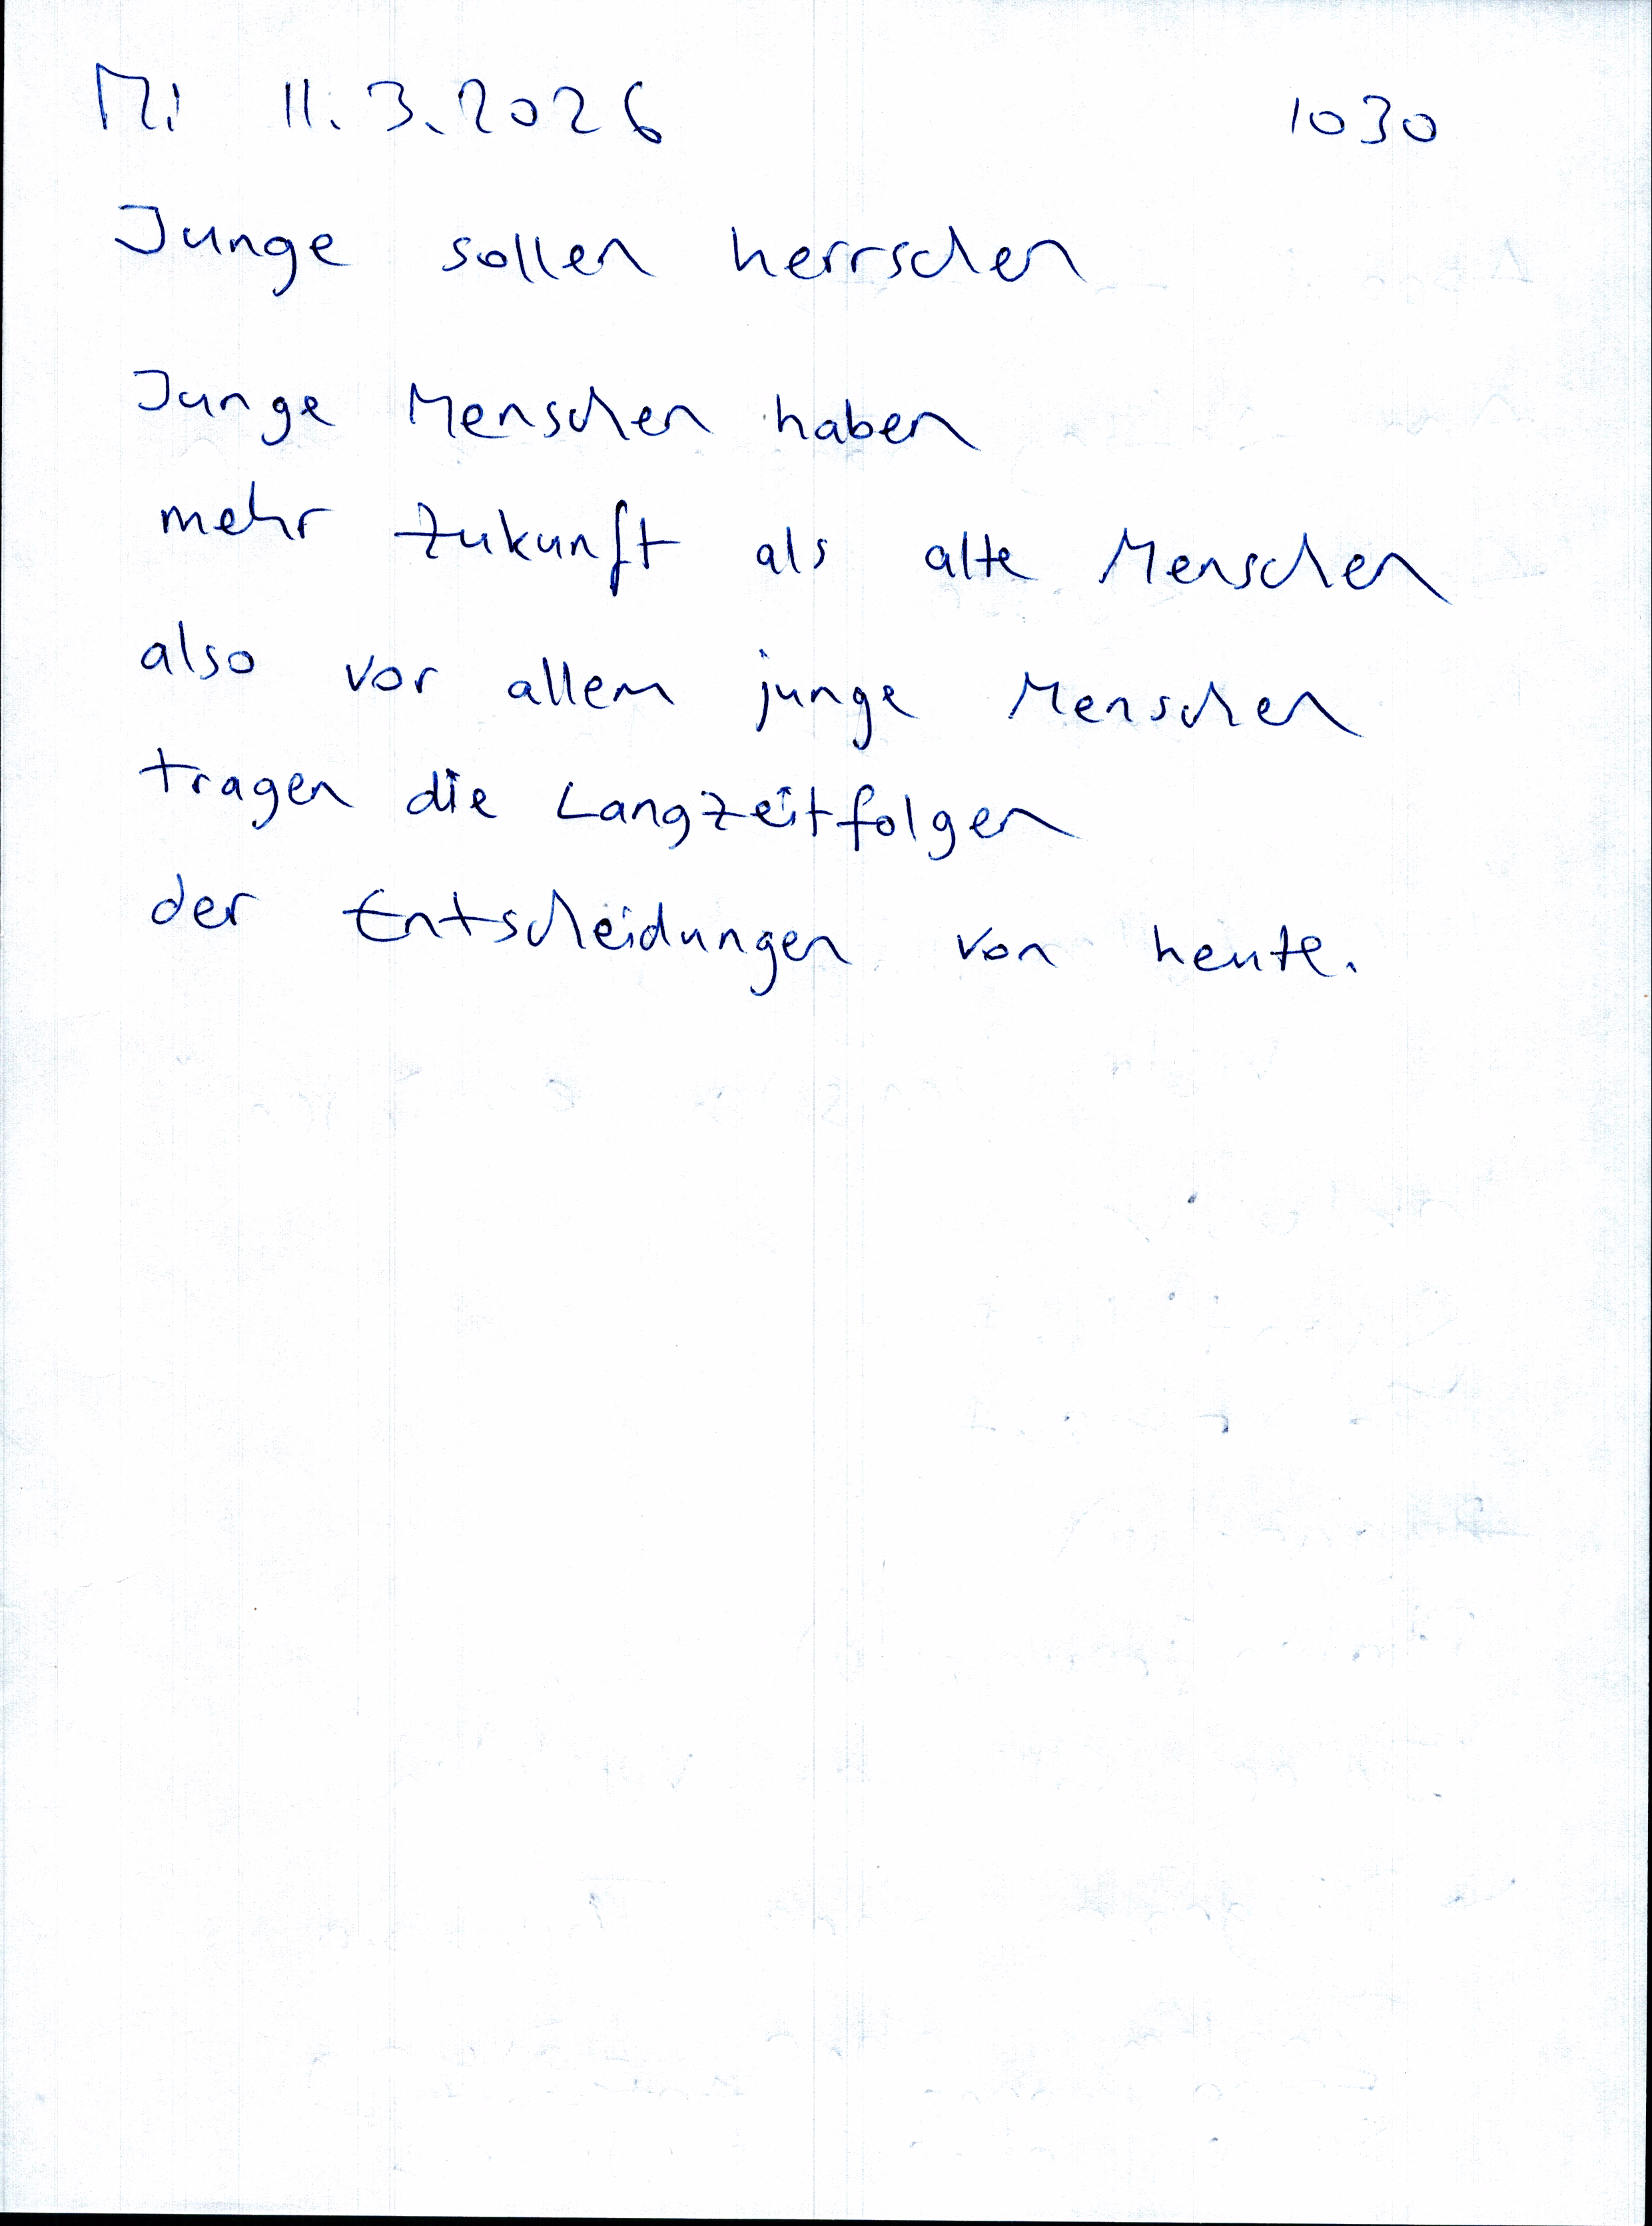 Mi 11.3.2026 1030
Junge sollen herrschen
Junge Menschen haben
mehr Zukunft als alte Menschen
also vor allem junge Menschen
tragen die Langzeitfolgen
der Entscheidungen von heute.